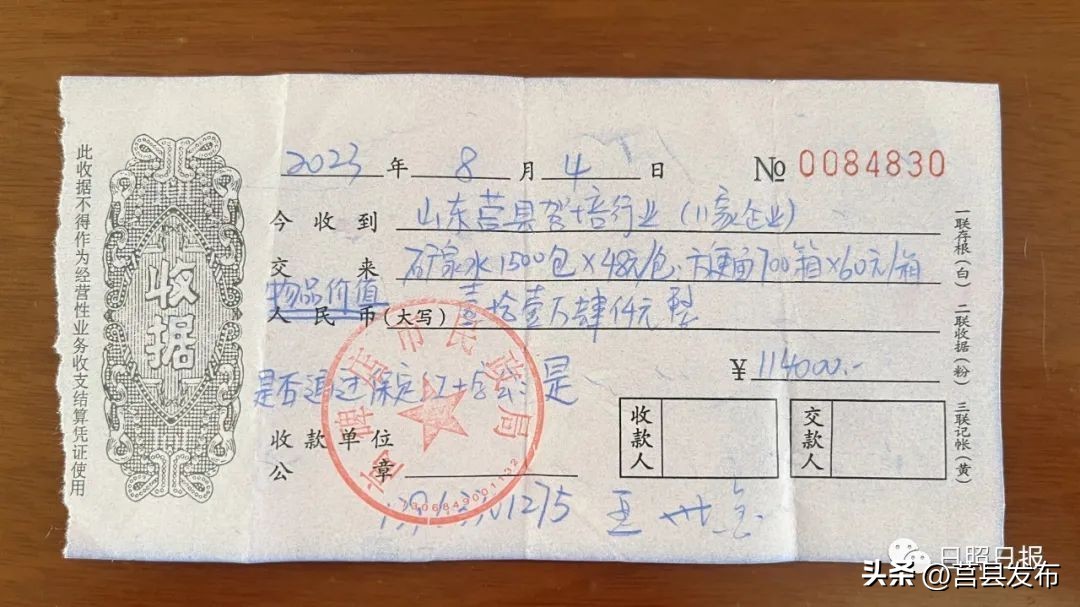 2023 年 8 月 4 日 № 0084830
今收到 山东莒县驾培行业（11家企业）
交来 矿泉水1500包×48元/包、方便面700箱×60元/箱
物品价值
人民币(大写) 壹拾壹万肆仟元整
¥ 114000.-
是否通过保定红十字会：是
收款单位
公章
收款人
交款人
高碑店市民政局
1306849001132
收据
此收据不得作为经营性业务收支结算凭证使用
一联存根(白) 二联收据(粉) 三联记帐(黄)
日照日报
头条 @莒县发布